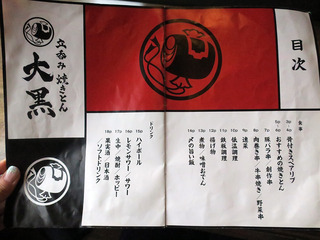 目次
食事
5p 骨付きスペアリブ
5p おすすめの焼きとん
7p 豚バラ串 創作串
8p 肉巻き串 牛串焼き 野菜串
9p 逸菜
10p 低温調理
11p 鉄板調理
12p 揚げ物
13p 煮物/味噌おでん
14p 〆の旨い飯
ドリンク
15p ハイボール
16p レモンサワー/サワー
17p 生中/焼酎/ホッピー
18p 果実酒/日本酒
19p ソフトドリンク
立呑み 焼きとん
大黒